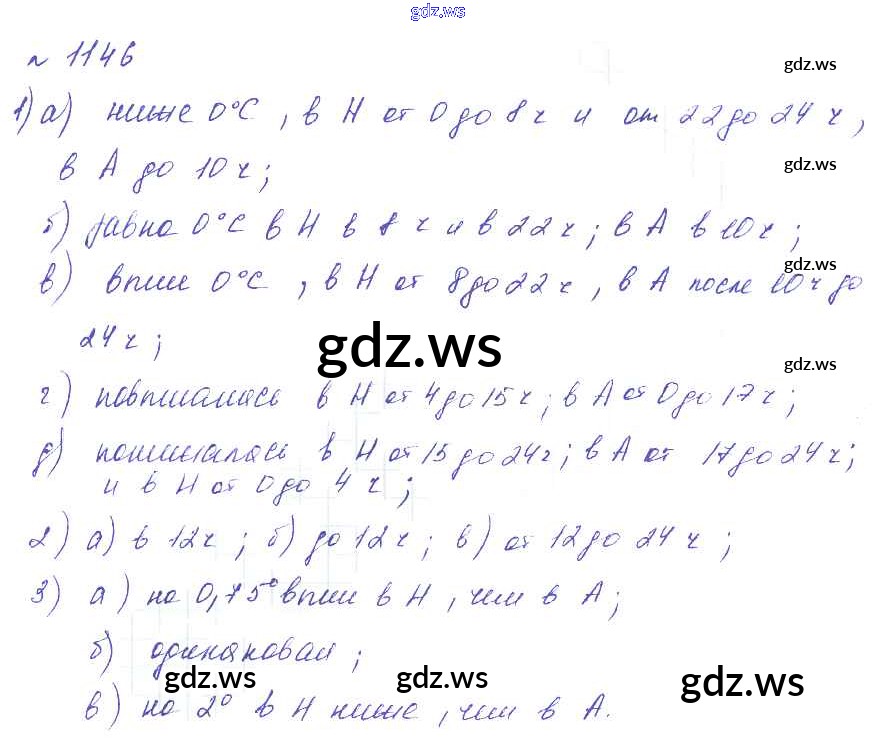 gdz.ws
№ 1146
gdz.ws
1) а) ниже 0°С, в Н от 0 до 8 ч и от 22 до 24 ч,
в А до 10 ч;
gdz.ws
б) равна 0°С в Н в 8 ч и в 22 ч; в А в 10 ч;
gdz.ws
в) выше 0°С, в Н от 8 до 22 ч, в А после 10 ч до
24 ч;
gdz.ws
gdz.ws
г) повышалась в Н от 4 до 15 ч; в А от 0 до 17 ч;
д) понижалась в Н от 15 до 24 ч; в А от 17 до 24 ч;
и в Н от 0 до 4 ч;
2) а) в 12 ч; б) до 12 ч; в) от 12 до 24 ч;
3) а) на 0,75° выше в Н, чем в А;
б) одинаковая;
gdz.ws gdz.ws gdz.ws
в) на 2° в Н ниже, чем в А.